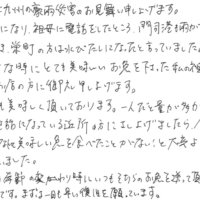 九州の豪雨災害のお見舞い申し上げます。
になり、祖母に電話をしたところ、門司港も雨が
き栄町の方は水びたしになったと言っていました。
な時にとても美味しいお魚を下さった私の祖
お店の方に御礼申し上げます。
も美味しく頂いております。一人だと量が多か
話になっている近所の方にさし上げましたら
なに美味しい魚を食べたことがない」と大変よ
ました。
季節の変わり時に、いつもそちらのお魚を送って頂
です。まずは一日も早い復旧を願っています。